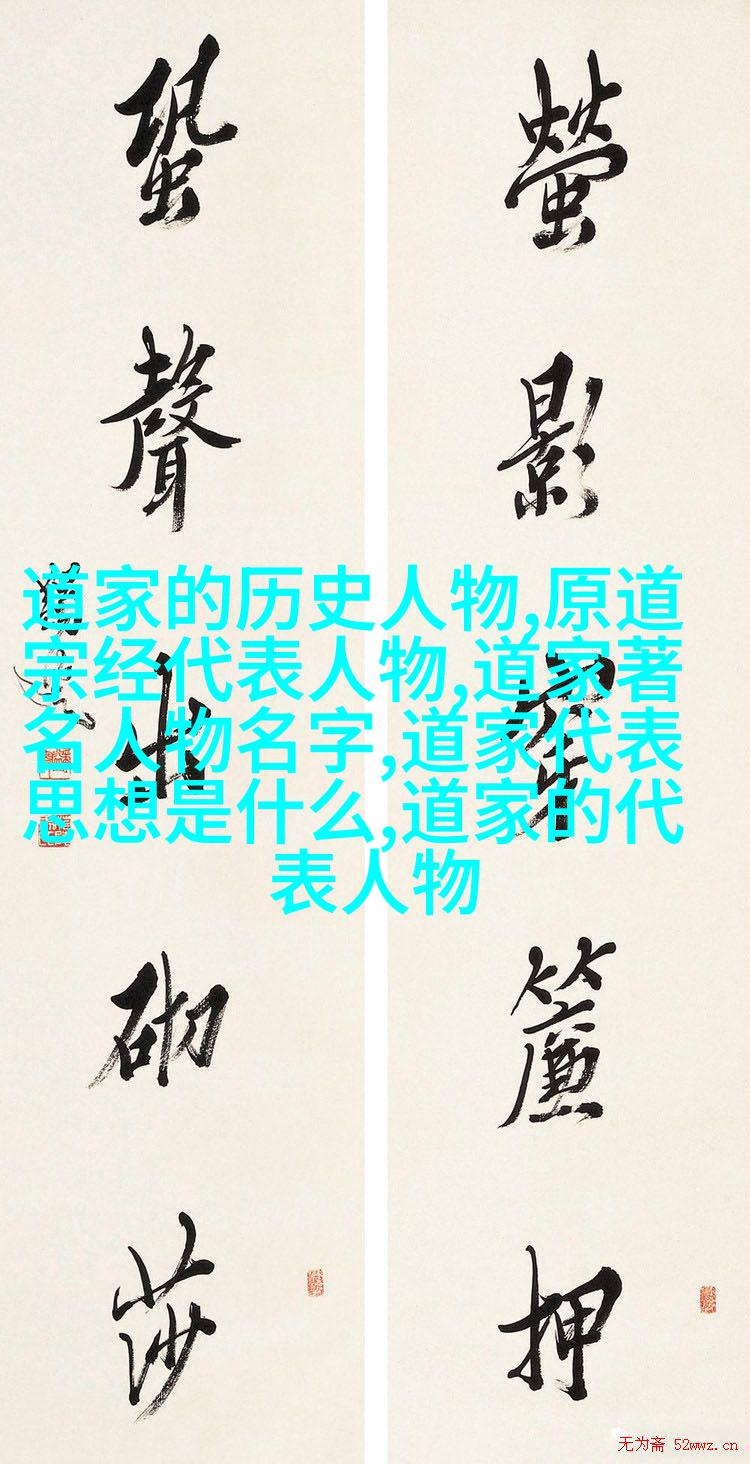 螢影簾押
蛩聲砌莎
道家的历史人物,原道
宗经代表人物,道家著
名人物名字,道家代表
思想是什么,道家的代
表人物
无为斋 52wwz.cn